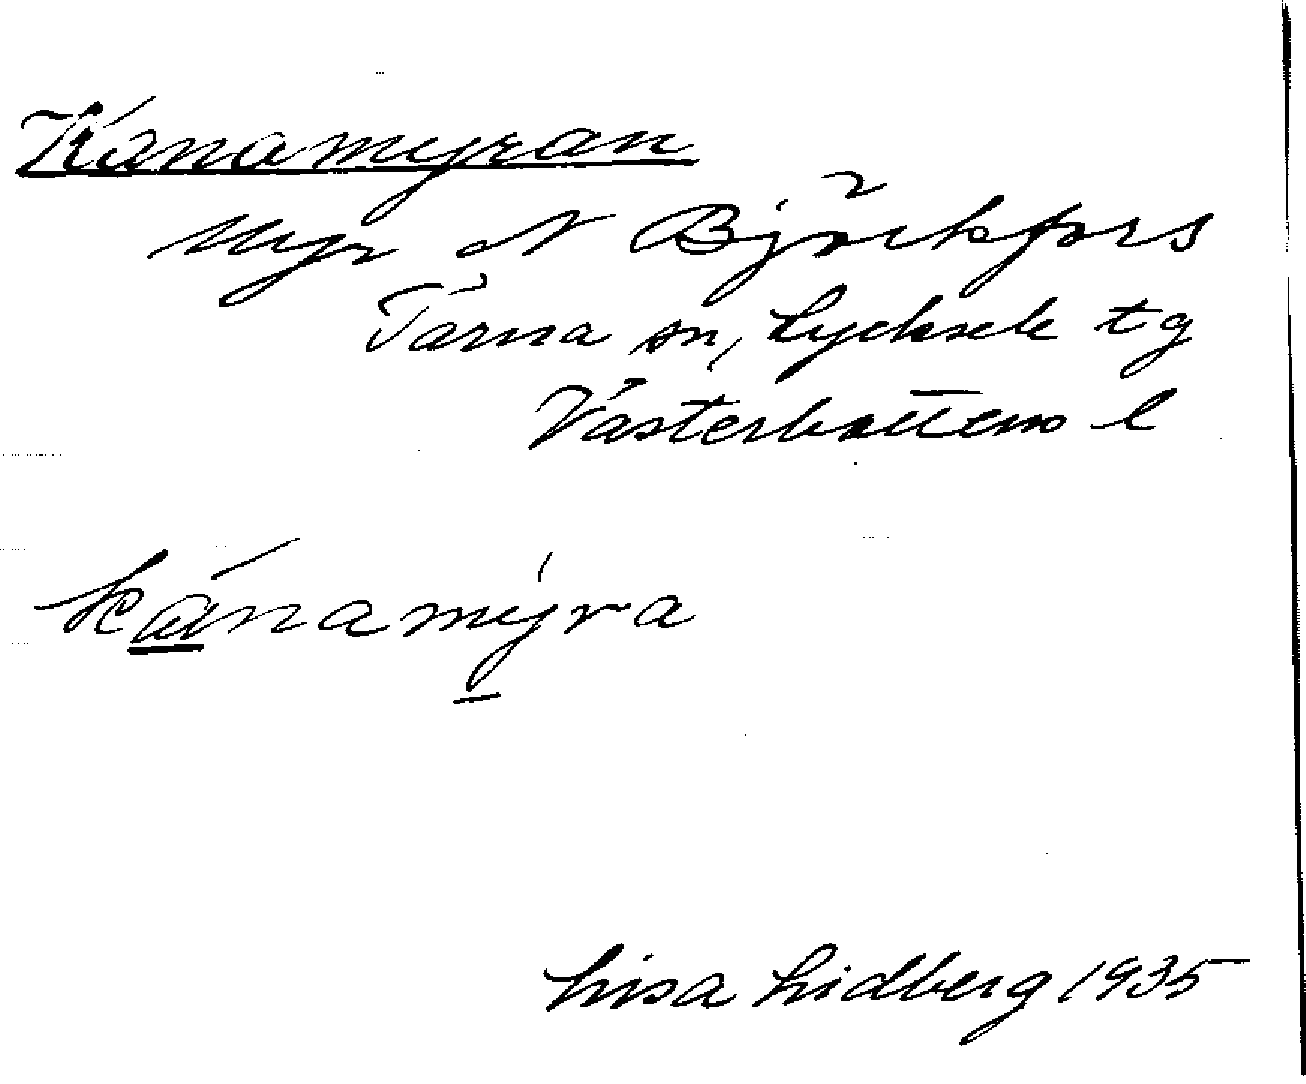 Kanamyran
Myr N Björkfors
Tärna sn, Lycksele tg
Västerbottens l
kánamýra
Lisa Lidberg 1935